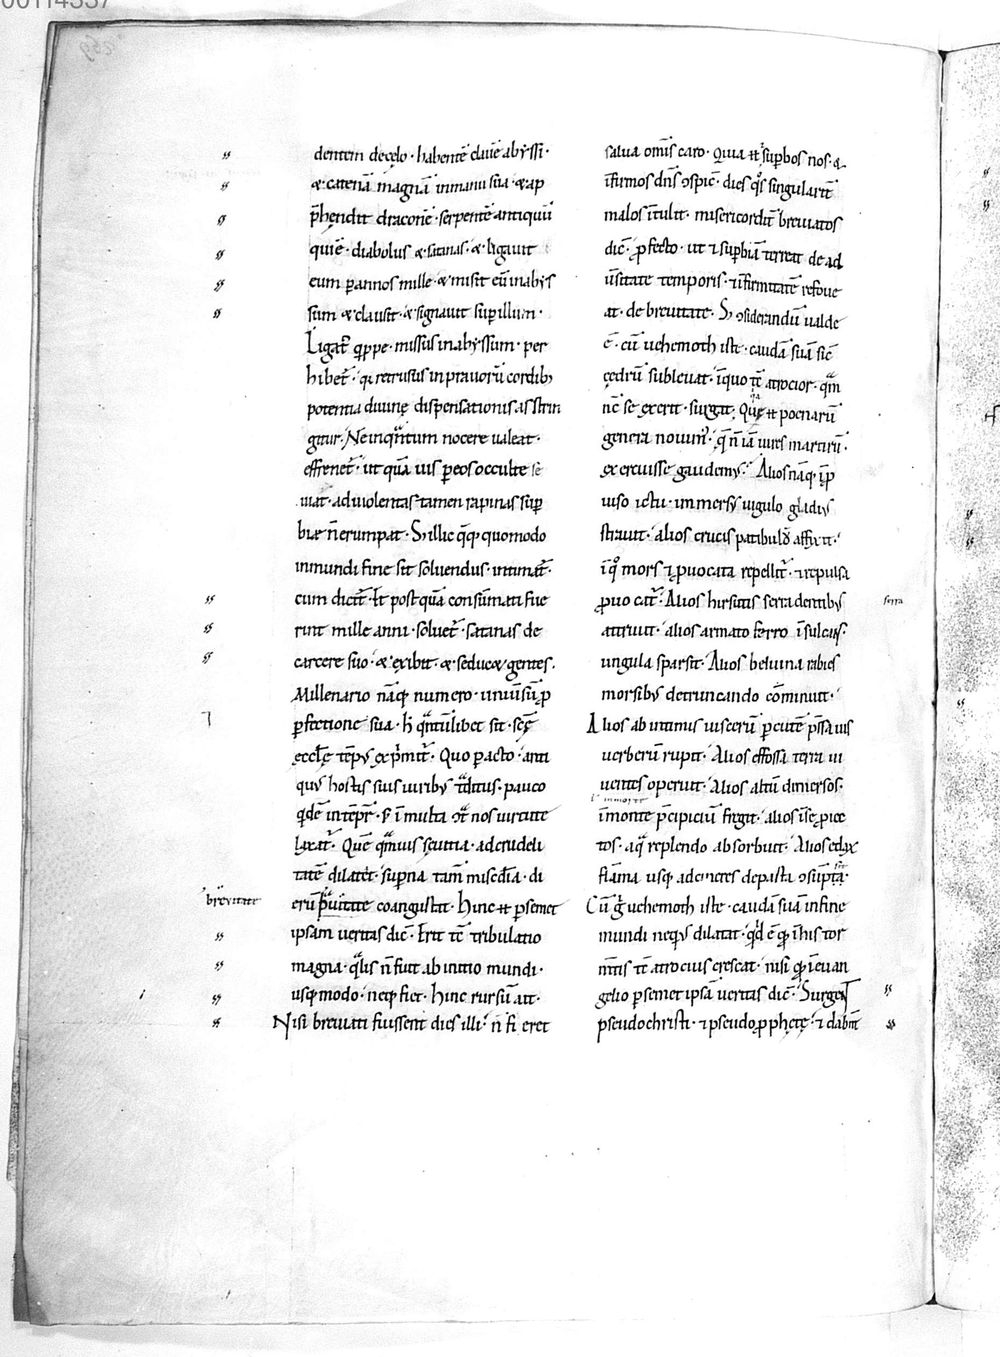 dentem de cęlo · habentē clauē abyssi ·
& catenā magnā in manu sua · & ap
p̄hendit draconē · serpentē antiquū
qui ē · diabolus & satanas · & ligauit
eum ꝑ annos mille · & misit eū in abys
sum & clausit · & signauit suꝑ illum ·
Ligat᷑ q̄ppe · missus in abyssum · per
hibet᷑ · q̇ retrusus in prauorū cordibꝫ
potentia diuinę dispensationis asstrin
gitur · Ne in q̄ntum nocere ualeat ·
effrenet᷑ · ut quā uis ꝑ eos occulte sę
uiat · ad uiolentas tamen rapinas suꝑ
bię n̄ erumpat · S; illic q̄q; quomodo
in mundi fine sit soluendus · intimat᷑ ·
cum dicit᷑ · Et post quā consūmati fue
rint mille anni · soluet᷑ · satanas de
carcere suo · & exibit · & seducet gentes ·
Millenario nāq; numero · uniuīsū ꝓ
ꝑfectione sua · h̄ q̄ntūlibet sit · scę̄
ecclę̄ temp᷒ exp̄mit᷑ · Quo ꝑacto · anti
quus hostis suis uirib᷒ t̄ditus · pauco
q̇dē in tempr̄ · s; ī multa ꝯt̄ nos uirtute
laxat᷑ · Quē q̄muis sęuitia · ad crudeli
tatē dilatet · suꝑna tam̄ miscdīa · di
breuitate
erū p̄uitate coangustat · Hinc ēt ꝑ semet
ipsam ueritas dic̄ · Erit tc̄ tribulatio
magna · q̄lis n̄ fuit ab initio mundi ·
usq; modo · neq; fiet · Hinc rursū ait ·
Nisi breuiati fuissent dies illi · n̄ fieret
salua omīs caro · Quia ēt suꝑbos nos · &
īfirmos dn̄s ꝯspic̄ · dies q̄s singularit᷑
malos ītulit · misericordit᷑ breuiatos
dic̄ · ꝓfecto · ut ⁊ suꝑbiā terreat de ad
ūsitate temporis · ⁊ īfirmitatē refoue
at · de breuitate · S; ꝯsiderandū ualde
ē · cū uehemoth iste · caudā suā sic̄
cędrū subleuat · ī quo tc̄ atrocior · q̄m
nc̄ se exerit · surgit · Quę ēt poenarū
genera nouim᷒ · q̄ n̄ iā uires martirū ·
exercuisse gaudem᷒ · Alios nāq; īꝓ
uiso ictu · immers᷒ iugulo gladi᷒
strauit · alios crucis patibulo affixit ·
ī q̊ mors ⁊ ꝓuocata repellit᷑ · ⁊ repulsa
ꝓuocat᷑ · Alios hirsutis serra dentib᷒
serra
attriuit · alios armato ferro ī sulcans ·
ungula sparsit · Alios beluina rabies
morsib᷒ detruncando cōminuit ·
Alios ab intimis uiscerū ꝑ cutē p̄ssa uis
uerberū rupit · Alios effossa terra ui
uentes operuit · Alios altū dimersos ·
ī morte
ī monte p̄cipiciū fregit · alios ī se ꝓiec
tos · aq̄ replendo absorbuit · Alios edax
flāma usq; ad cineres depasta ꝯsūpta ·
Cū g̊ uehemoth iste · caudā suā in fine
mundi neq̇᷒ dilatat · q̇d ē q̊ ī his tor
mn̄tis tc̄ atrocius crescat · nisi q̊ ī euan
gelio ꝑ semet ipsā ueritas dic̄ · Surgent
pseudochristi · ⁊ pseudoꝓphetę · ⁊ dabn̄t